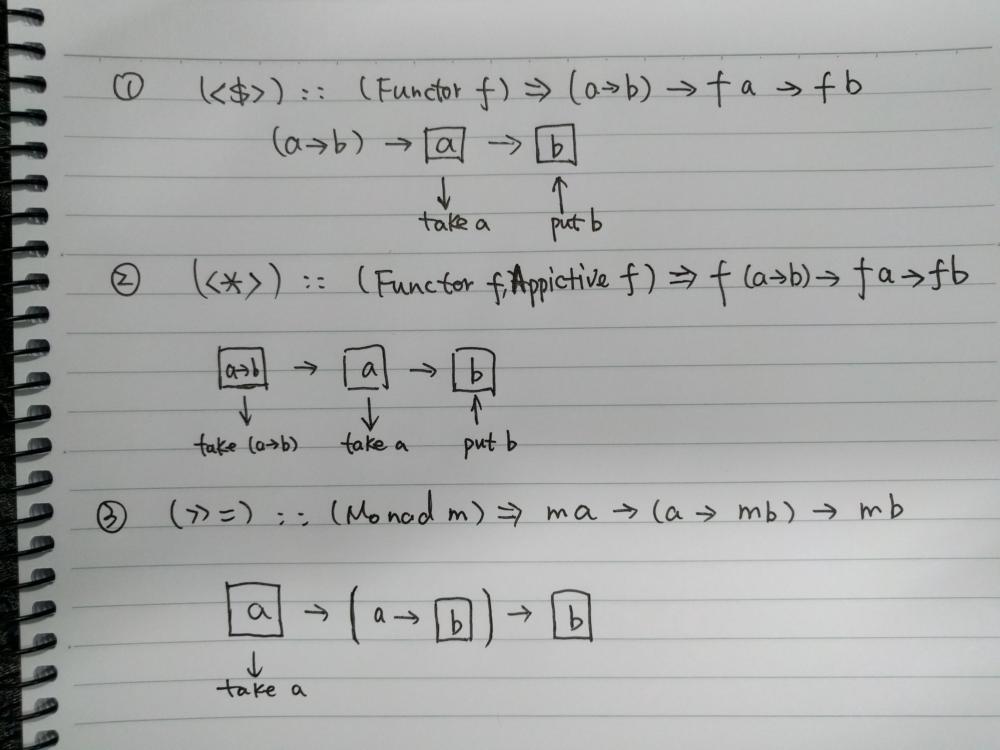 ① (<$>) :: (Functor f) ⇒ (a→b) → f a → f b
(a→b) → a → b
↓ ↑
take a put b
② (<*>) :: (Functor f, Appictive f) ⇒ f (a→b) → f a → f b
a→b → a → b
↓ ↓ ↑
take (a→b) take a put b
③ (>>=) :: (Monad m) ⇒ m a → (a → m b) → m b
a → (a → b) → b
↓
take a